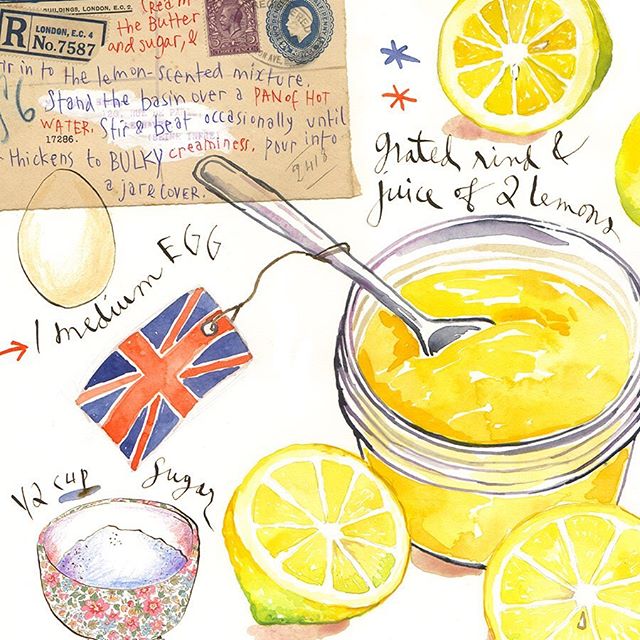 BUILDINGS, LONDON, E.C. 2
R LONDON, E.C. 4
No. 7587
the Butter
and sugar, &
in to the lemon-scented mixture.
Stand the basin over a PAN of HOT
WATER. Stir & beat occasionally until
17286.
thickens to BULKY creaminess. pour into
a jar & COVER.
grated rind &
juice of 2 lemons
1 medium EGG
1/2 cup sugar